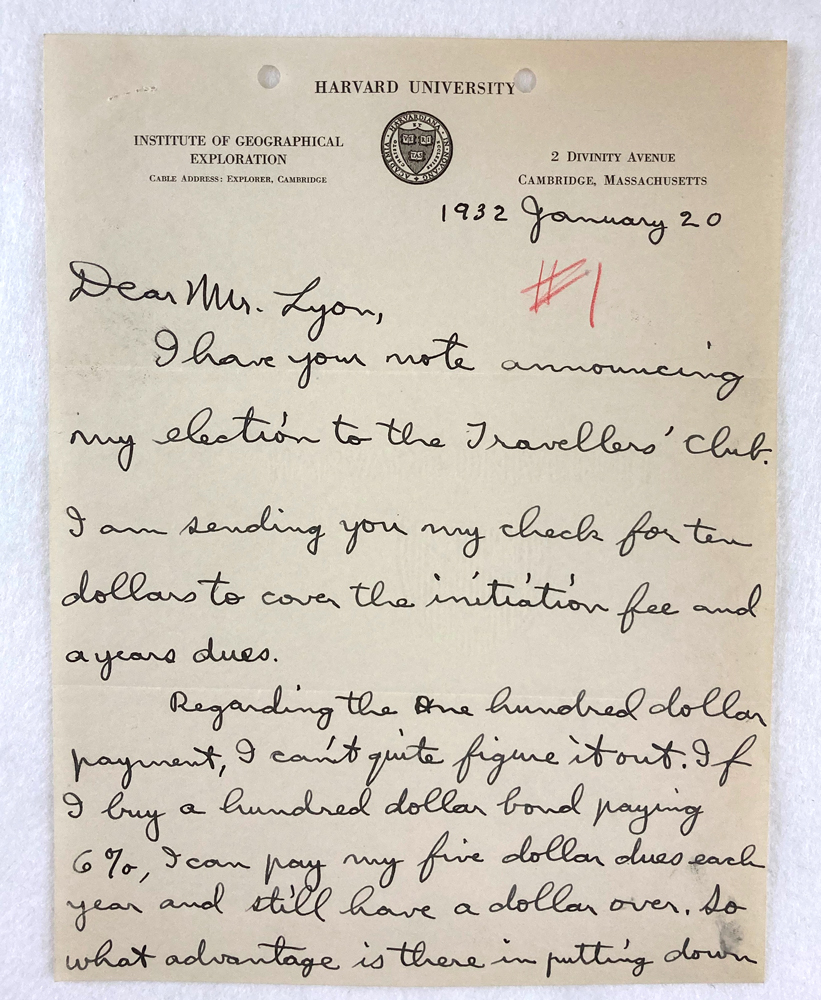 HARVARD UNIVERSITY
INSTITUTE OF GEOGRAPHICAL
EXPLORATION
CABLE ADDRESS: EXPLORER, CAMBRIDGE
2 DIVINITY AVENUE
CAMBRIDGE, MASSACHUSETTS
1932 January 20
#1
Dear Mr. Lyon,
I have your note announcing
my election to the Travellers' Club.
I am sending you my check for ten
dollars to cover the initiation fee and
a years dues.
Regarding the One hundred dollar
payment, I can't quite figure it out. If
I buy a hundred dollar bond paying
6%, I can pay my five dollar dues each
year and still have a dollar over. So
what advantage is there in putting down